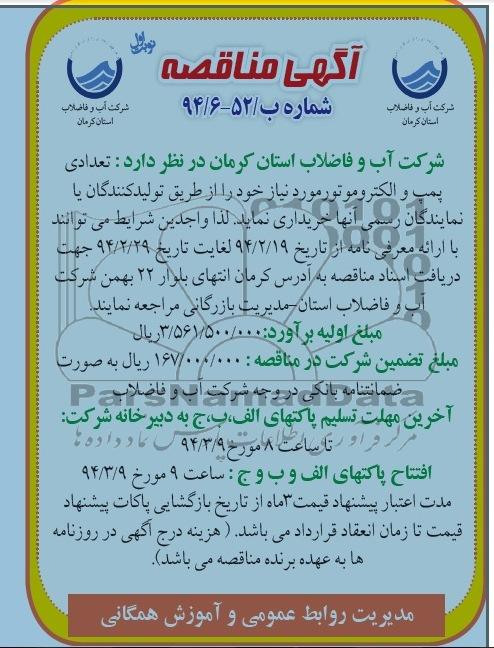 نوبت اول
آگهی مناقصه
شماره ب/۵۲-۹۴/۶
شرکت آب و فاضلاب
استان کرمان
شرکت آب و فاضلاب
استان کرمان
شرکت آب و فاضلاب استان کرمان در نظر دارد : تعدادی
پمپ و الکتروموتورمورد نیاز خود را از طریق تولیدکنندگان یا
نمایندگان رسمی آنها خریداری نماید. لذا واجدین شرایط می توانند
با ارائه معرفی نامه از تاریخ ۹۴/۲/۱۹ لغایت تاریخ ۹۴/۲/۲۹ جهت
دریافت اسناد مناقصه به آدرس کرمان انتهای بلوار ۲۲ بهمن شرکت
آب و فاضلاب استان-مدیریت بازرگانی مراجعه نمایند.
مبلغ اولیه برآورد:۳/۵۶۱/۵۰۰/۰۰۰ریال
مبلغ تضمین شرکت در مناقصه : ۱۶۷/۰۰۰/۰۰۰ ریال به صورت
ضمانتنامه بانکی در وجه شرکت آب و فاضلاب
آخرین مهلت تسلیم پاکتهای الف،ب،ج به دبیرخانه شرکت:
تا ساعت ۸ مورخ۹۴/۳/۹
افتتاح پاکتهای الف و ب و ج : ساعت ۹ مورخ ۹۴/۳/۹
مدت اعتبار پیشنهاد قیمت۳ماه از تاریخ بازگشایی پاکات پیشنهاد
قیمت تا زمان انعقاد قرارداد می باشد. ( هزینه درج آگهی در روزنامه
ها به عهده برنده مناقصه می باشد).
مدیریت روابط عمومی و آموزش همگانی
ParsNamadData